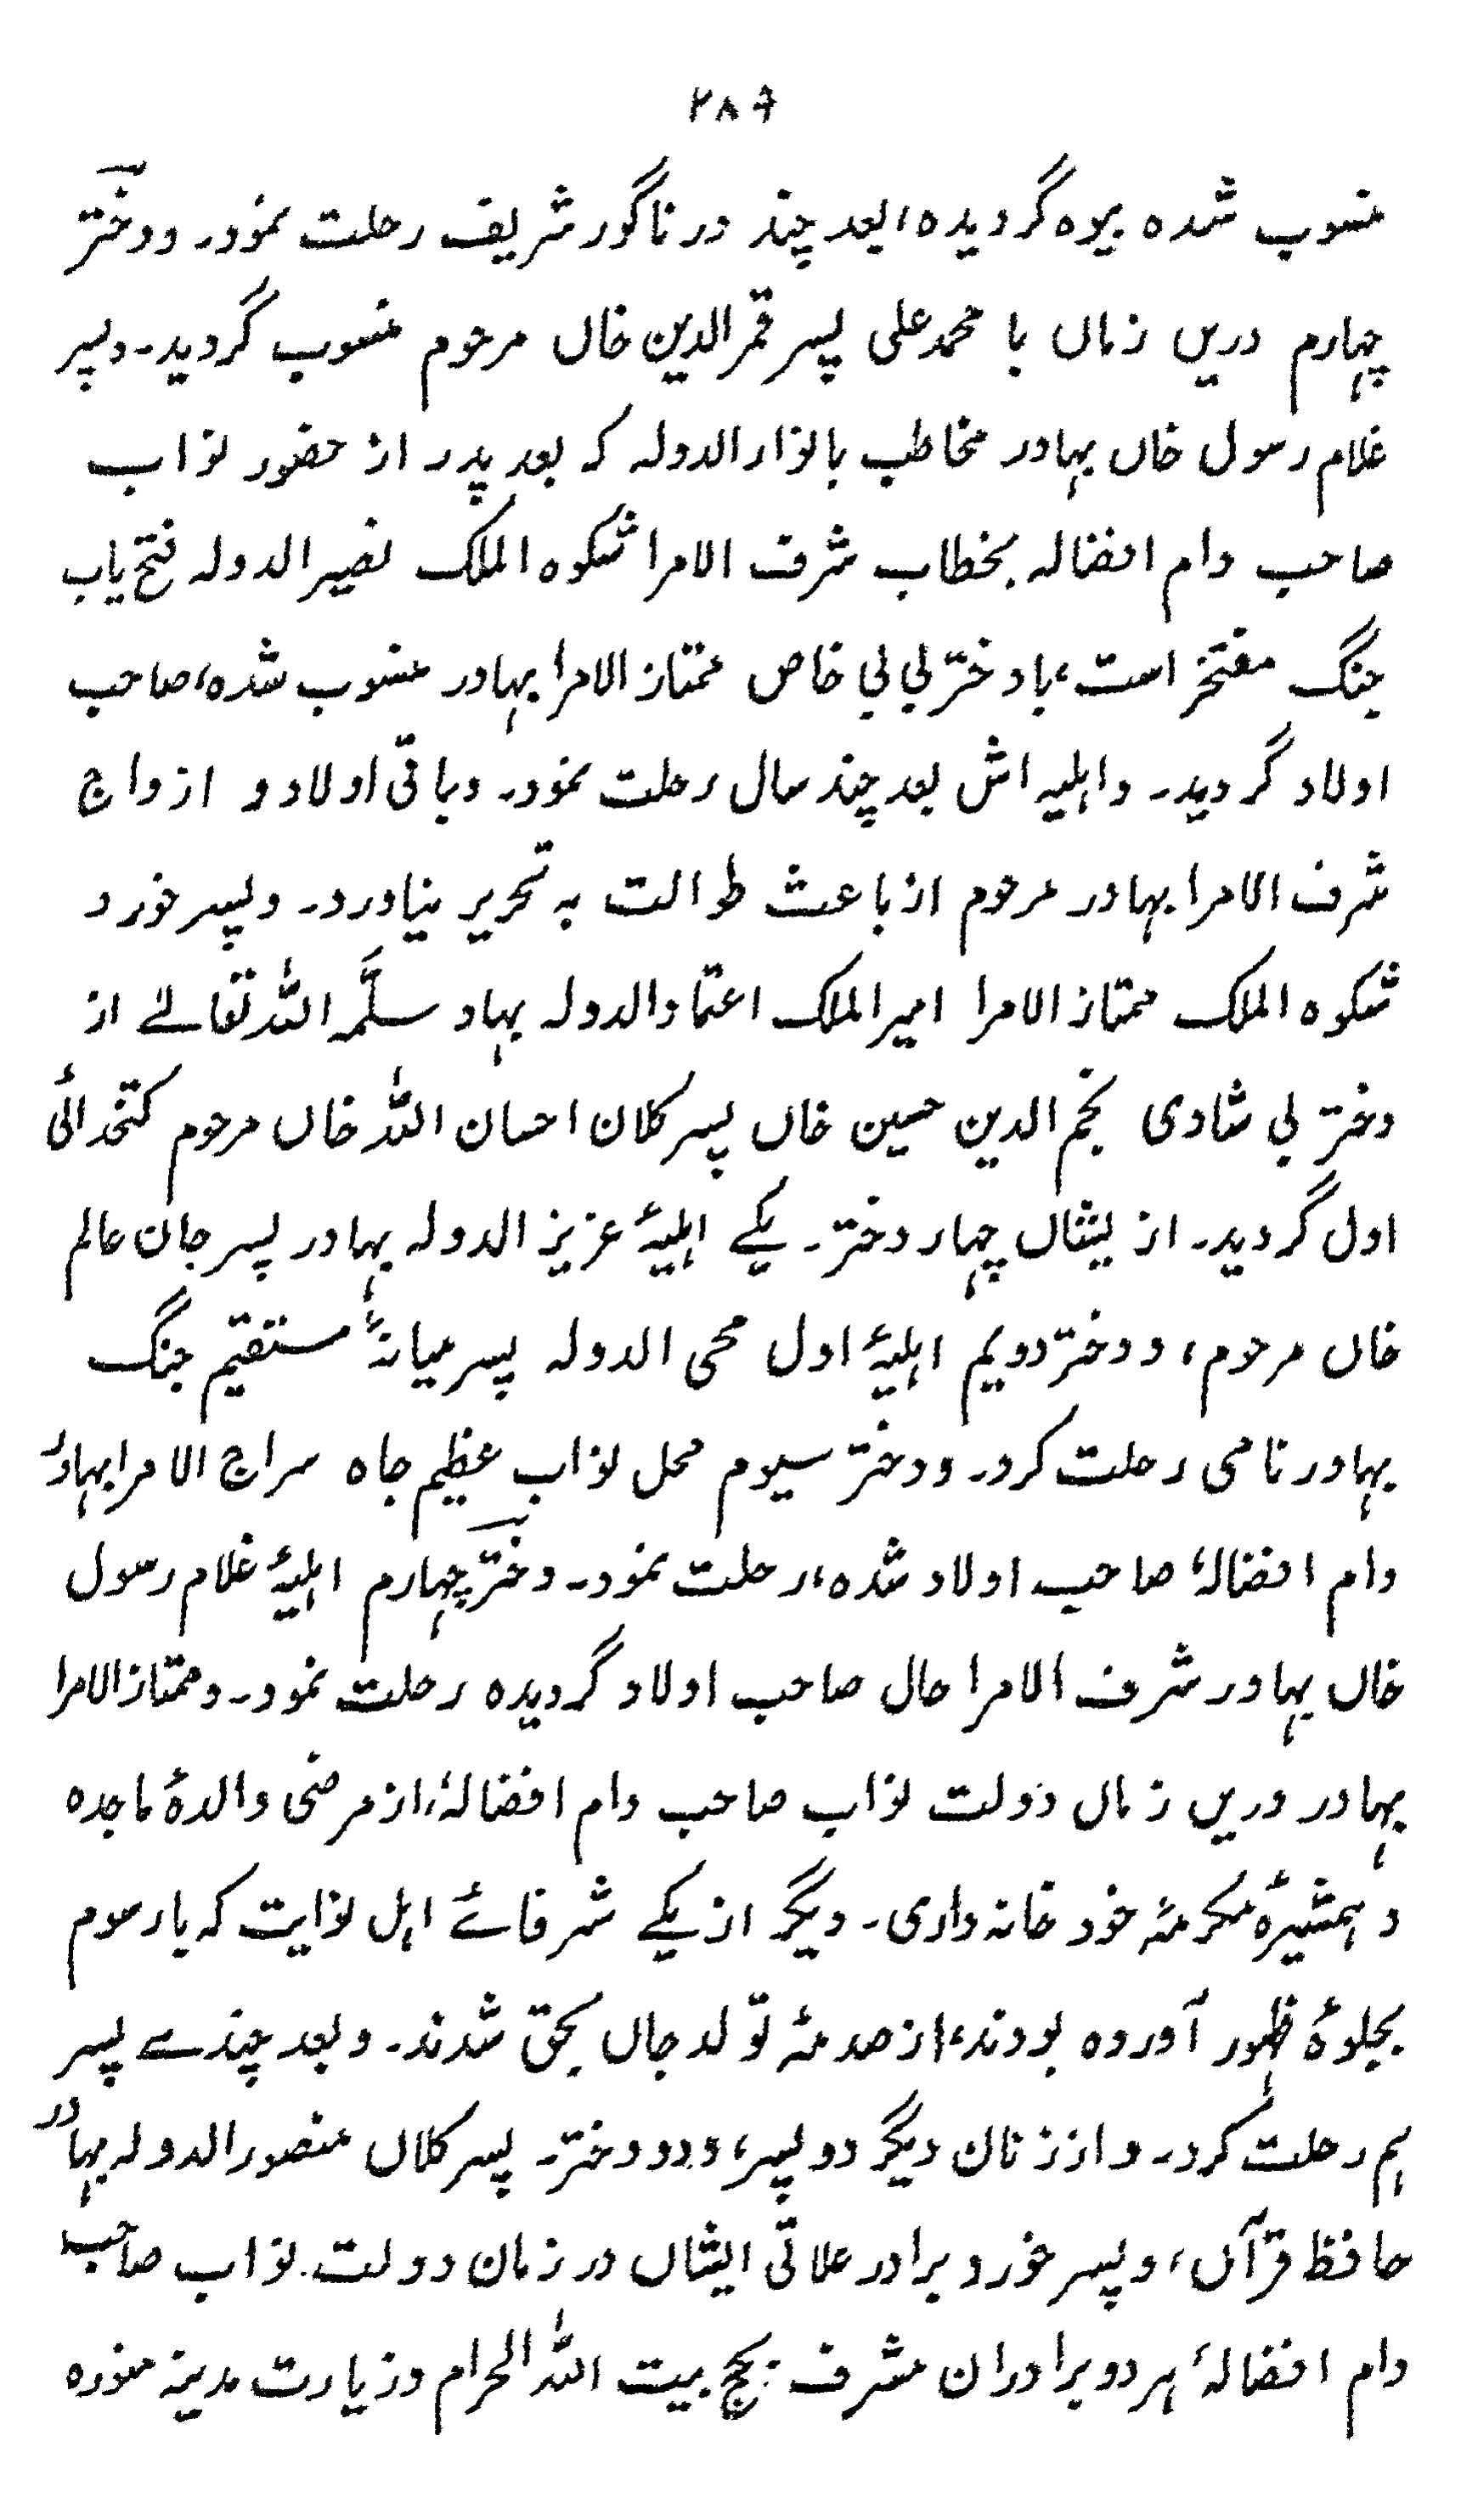 ۲۸۶
منسوب شده بیوه گردیده، بعد چند در ناگور شریف رحلت نمود۔ و دختر
چہارم دریں زماں با محمد علی پسر قمرالدین خاں مرحوم منسوب گردید۔ و پسر
غلام رسول خاں بہادر مخاطب بانوارالدولہ کہ بعد پدر از حضور نواب
صاحب دام افضالہ بخطاب شرف الامرا شکوہ الملک نصیرالدولہ فتح یاب
جنگ مفتخر است، با دختر بی بی خاص ممتاز الامرا بہادر منسوب شدہ، صاحب
اولاد گردید۔ و اہلیہ اش بعد چند سال رحلت نمود۔ و باقی اولاد و ازواج
شرف الامرا بہادر مرحوم از باعث طوالت بہ تحریر نیاورد۔ و پسر خورد
شکوہ الملک ممتاز الامرا امیرالملک اعتمادالدولہ بہاد سلّمہ اللہ تعالےٰ از
دختر بی شادی نجم الدین حسین خاں پسر کلان احسان اللہ خاں مرحوم کتخدائی
اول گردید۔ از یشاں چہار دختر۔ یکے اہلیۂ عزیز الدولہ بہادر پسر جان عالم
خاں مرحوم، و دختر دویم اہلیۂ اول محی الدولہ پسر میانۂ مستقیم جنگ
بہادر نامی رحلت کرد۔ و دختر سیوم محل نواب عظیم جاہ سراج الامرا بہادر
دام افضالہٗ صاحب اولاد شدہ، رحلت نمود۔ دختر چہارم اہلیۂ غلام رسول
خاں بہادر شرف الامرا حال صاحب اولاد گردیدہ رحلت نمود۔ و ممتاز الامرا
بہادر دریں زماں دولت نواب صاحب دام افضالہٗ، از مرضی والدۂ ماجدہ
و ہمشیرۂ مکرمۂ خود خانہ داری۔ دیگر از یکے شرفائے اہل نوایت کہ یا رسوم
بجلوۂ ظہور آوردہ بودند، از صدمۂ تولد جاں بحق شدند۔ و بعد چندے پسر
ہم رحلت کرد۔ و از زنان دیگر دو پسر، و دو دختر۔ پسر کلاں منصورالدولہ بہادر
حافظ قرآں، و پسر خورد برادر علاتی ایشاں در زمان دولت نواب صاحب
دام افضالہٗ ہر دو برادران مشرف بحج بیت اللہ الحرام و زیارت مدینہ منورہ